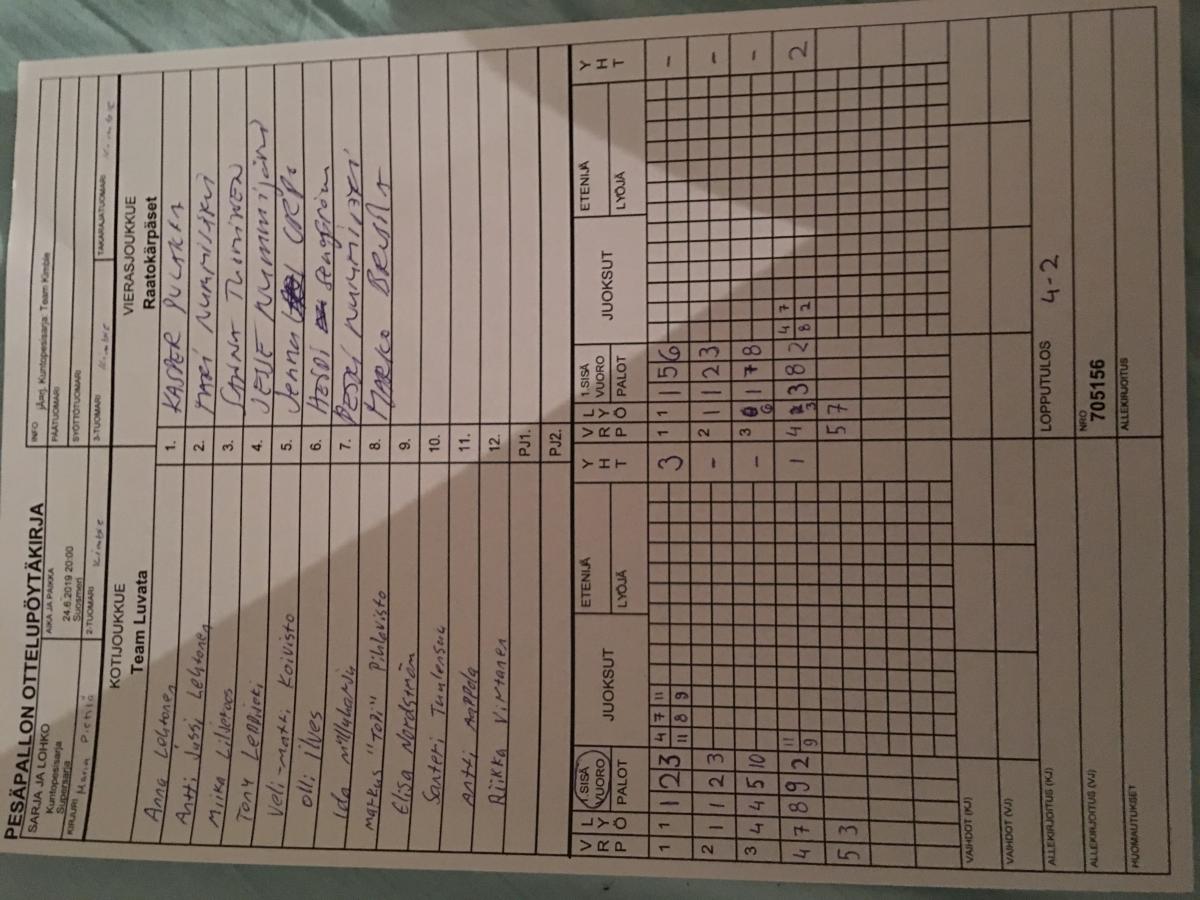 PESÄPALLON OTTELUPÖYTÄKIRJA
SARJA JA LOHKO
Kuntopesisarja
Supersarja
AIKA JA PAIKKA
24.6.2019 20:00
Suosmeri
INFO
Kuntopesisarja: Team Kimble
KIRJURI
2-TUOMARI Kimble
PÄÄTUOMARI
SYÖTTÖTUOMARI
3-TUOMARI Kimble
TAKARAJATUOMARI Kimble
KOTIJOUKKUE
Team Luvata
VIERASJOUKKUE
Raatokärpäset
Anna Lehtonen 1. KASPER
Antti Jussi Lehtonen 2. MARI NUMMISTKI
Miika Liljeroos 3. SANNA TUOMINEN
Tony 4. JESSE NUMMIJÄRVI
Veli-Matti Koivisto 5. Jenna
Olli Ilves 6. Heidi
Ida Myllyharju 7.
Markus "Topi" Pihlavisto 8. MARKO
Elisa Nordström 9.
Santeri Tuulensuu 10.
Antti 11.
Riikka Virtanen 12.
PJ1.
PJ2.
V R P L Y Ö 1.SISÄ VUORO PALOT JUOKSUT ETENIJÄ LYÖJÄ Y H T V R P L Y Ö 1.SISÄ VUORO PALOT JUOKSUT ETENIJÄ LYÖJÄ Y H T
1 1 1 2 3 4 7 11 3 1 1 1 5 6 -
11 8 9
2 1 1 2 3 - 2 1 1 2 3 -
3 4 4 5 10 - 3 6 1 7 8 -
4 7 8 9 2 11 1 4 3 3 8 2 4 7 2
9 8 2
5 3 5 7
VAIHDOT (KJ)
VAIHDOT (VJ)
ALLEKIRJOITUS (KJ) LOPPUTULOS 4-2
ALLEKIRJOITUS (VJ) NRO 705156
HUOMAUTUKSET ALLEKIRJOITUS